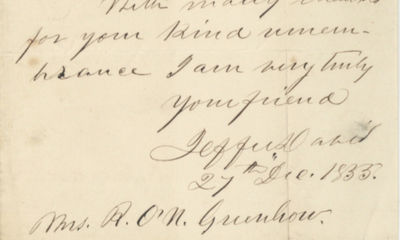 With many thanks
for your kind remem-
brance I am very truly
your friend
Jeffn Davis
27th Dec. 1855.
Mrs. R. O'N. Greenhow.